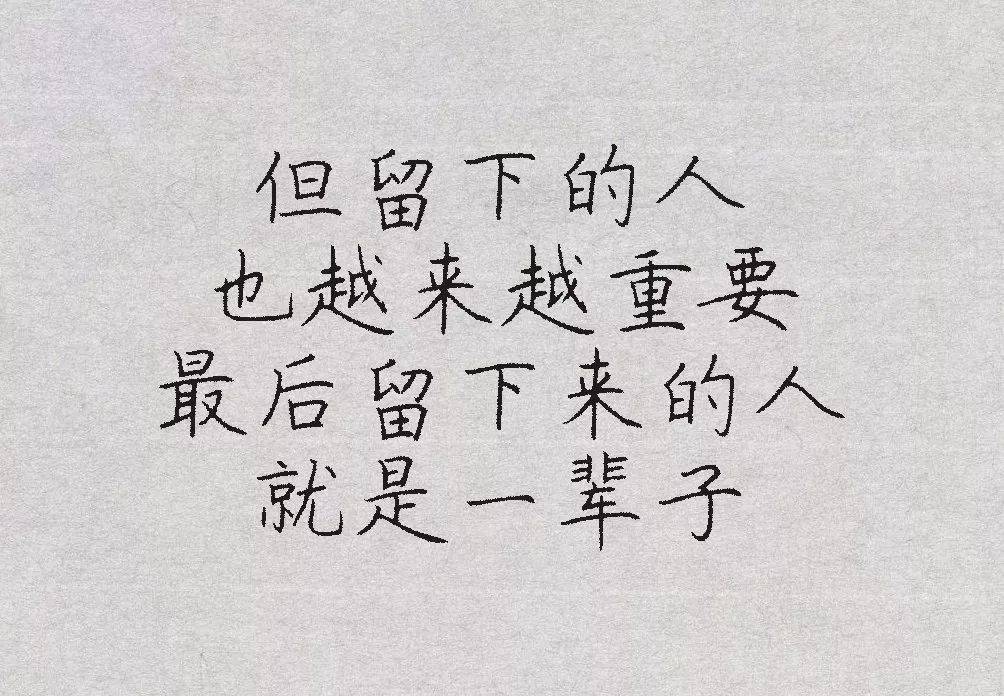 但留下的人
也越来越重要
最后留下来的人
就是一辈子